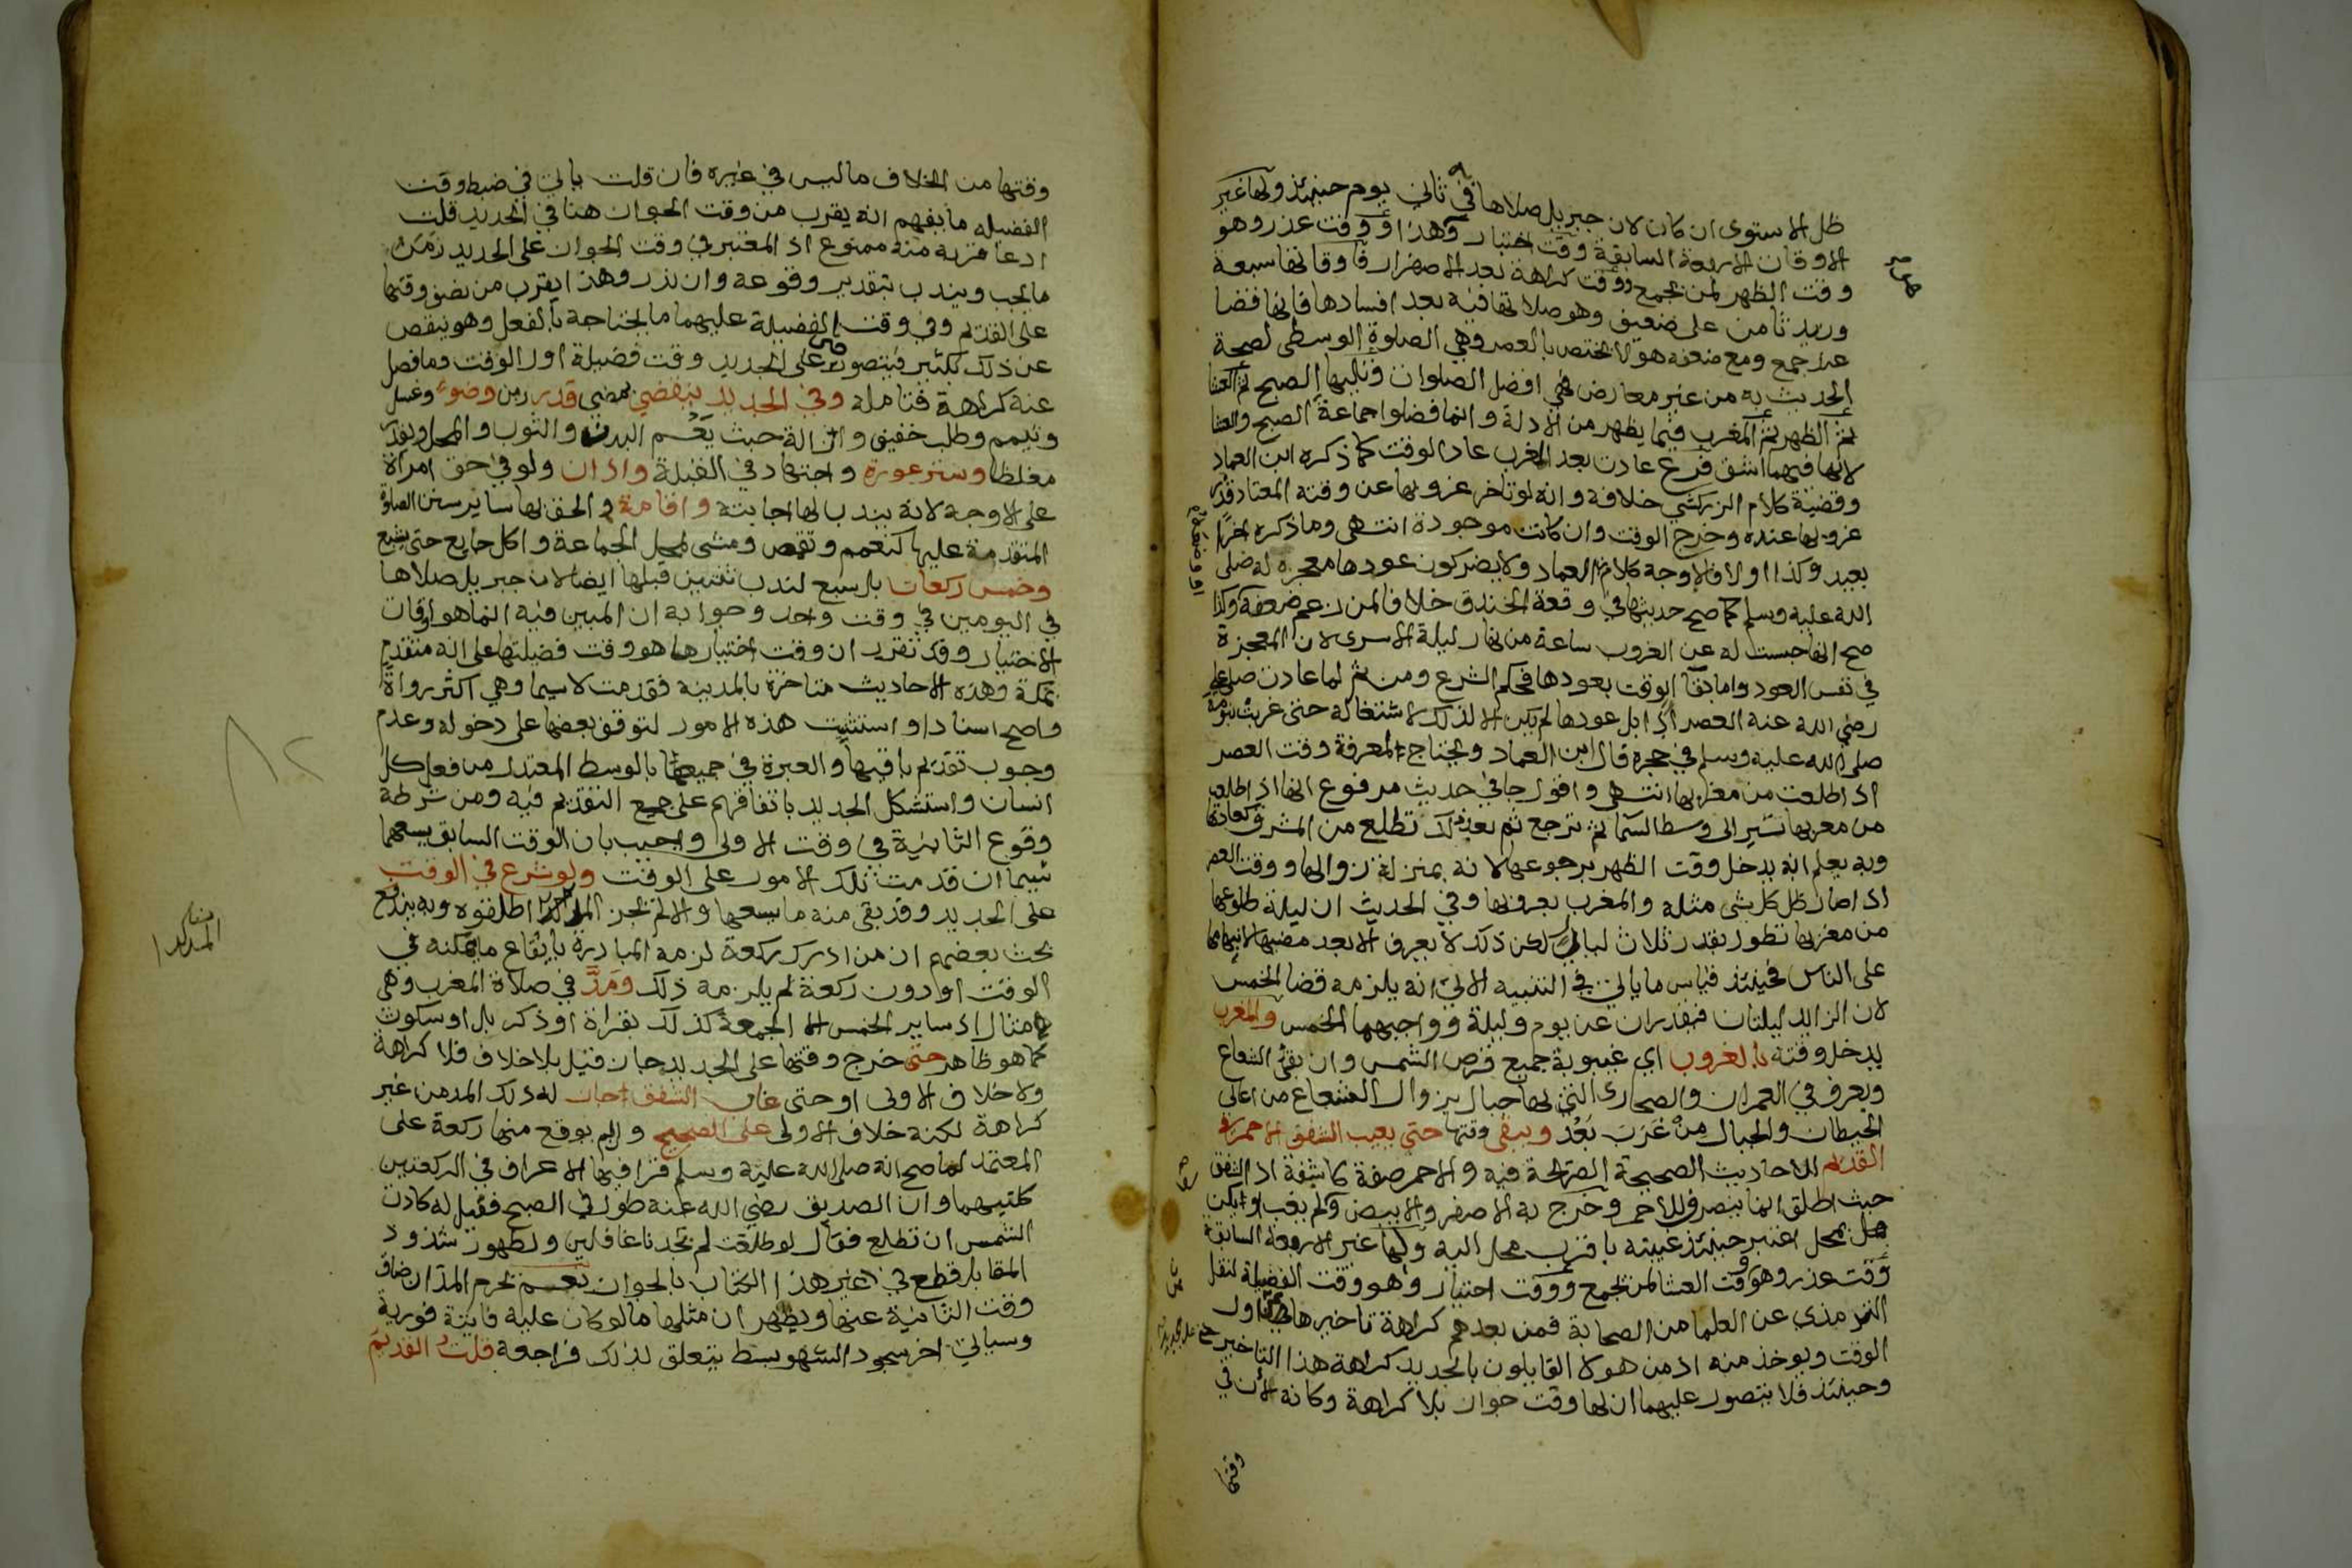 ظل الاستوى ان كان لان جبريل صلاها في ثاني يوم حينئذ ولها غير
الاوقات الاربعة السابقة وقت اختيار وهذا ووقت عذر وهو
وقت الظهر لمن يجمع ووقت كراهة بعد الاصفرار فاوقاتها سبعة
وزيد ثامن على ضعيف وهو صلاتها فيه بعد افسادها فانها قضا
عند جمع ومع ضعفه هو لا يختص بالعصر وهي الصلوة الوسطى لصحة
الحديث به من غير معارض فهي افضل الصلوات وتليها الصبح ثم العشا
ثم الظهر ثم المغرب فيما يظهر من الادلة وانما فضلوا جماعة الصبح والعشا
لانها فيهما اشق فرع عادت بعد الغرب عاد الوقت كما ذكره ابن العماد
وقضية كلام الزركشي خلافه وانه لو تاخر غروبها عن وقته المعتاد قدر
غروبها عنده وخرج الوقت وان كانت موجودة انتهى وما ذكره اخرا
بعيد وكذا اولا فالاوجه كلام ابن العماد ولا يضر كون عودها معجزه له صلى
الله عليه وسلم كما صح حديثها في وقعة الخندق خلافا لمن زعم ضعفه وكذا
صح انها حبست له عن الغروب ساعة من نهار ليلة الاسرى لان المعجزة
في نفس العود واما بقا الوقت بعودها فبحكم الشرع ومن ثم لما عادت صلى علي
رضي الله عنه العصر اذا بل عودها لم يكن الا لذلك لاشتغاله حتى غربت بنومه
صلى الله عليه وسلم في حجره قال ابن العماد ويحتاج لمعرفة وقت العصر
اذا طلعت من مغربها انتهى واقول جا في حديث مرفوع انها اذا طلعت
من مغربها تسير الى وسط السما ثم ترجع ثم بعد ذلك تطلع من المشرق كعادتها
وبه يعلم انه يدخل وقت الظهر برجوعها لانه بمنزلة زوالها ووقت العصر
اذا صار ظل كل شي مثله والمغرب بغروبها وفي الحديث ان ليلة طلوعها
من مغربها تطول بقدر ثلاث ليال لكن ذلك لا يعرف الا بعد مضيها لابهامها
على الناس فحينئذ قياس ما ياتي في التنبيه الاتي انه يلزمه قضا الخمس
لان الزايد ليلتان فيقدران عن يوم وليلة وواجبهما الخمس والمغرب
يدخل وقته بالغروب اي غيبوبة جميع قرص الشمس وان بقي الشعاع
ويعرف في العمران والصحارى التي بها جبال بزوال الشعاع من اعالي
الحيطان والجبال من غَرَبَ بَعُدَ ويبقى وقتها حتى يغيب الشفق الاحمر في
القديم للاحاديث الصحيحة الصريحة فيه والاحمر صفة كاشفة اذ الشفق
حيث اطلق انما ينصرف للاحمر وخرج به الاصفر والابيض ولم يغب او لم يكن
بمحل اعتبر حينئذ غيبته باقرب محل اليه ولها غير الاربعة السابقة
وقت عذر وهو وقت العشا لمن يجمع ووقت اختيار وهو وقت الفضيلة لنقل
الترمذي عن العلما من الصحابة فمن بعدهم كراهة تاخيرها عن اول
الوقت ويوخذ منه اذ من هولا القايلون بالجديد كراهة هذا التاخير
وحينئذ فلا يتصور عليهما ان لها وقت جواز بلا كراهة وكانه لان في
وقتها
وقتها من الخلاف ما ليس في غيره فان قلت ياتي في ضبط وقت
الفضيله ما يفهم انه يقرب من وقت الجواز هنا في الجديد قلت
ادعا قربه منه ممنوع اذ المعتبر في وقت الجواز على الجديد زمن
ما يجب ويندب بتقدير وقوعه وان ندر وهذا يقرب من نصف وقتها
على القديم وفي وقت الفضيلة عليهما ما يحتاجه بالفعل وهو ينقص
عن ذلك بكثير فيتصور على الجديد وقت فضيلة اول الوقت وما فضل
عنه كراهة فتامله وفي الجديد ينقضي بمضي قدر زمن وضوء وغسل
وتيمم وطلب خفيف وازالة خبث يَعُم البدن والثوب والمحل ويقدر
مغلظا وستر عورة واجتهاد في القبلة واذان ولو في حق امراة
على الاوجه لانه يندب لها اجابته واقامة والحق بها ساير سنن الصلوة
المتقدمة عليها كتعمم وتقمص ومشي لمحل الجماعة واكل جايع حتى يشبع
وخمس ركعات بل سبع لندب ثنتين قبلها ايضا لان جبريل صلاها
في اليومين في وقت واحد وجوابه ان المبين فيه انما هو اوقات
الاختيار وقد تقرر ان وقت اختيارها هو وقت فضيلتها على انه متقدم
بمكة وهذه الاحاديث متاخرة بالمدينه فقدمت لاسيما وهي اكثر رواة
واصح اسنادا واستثنيت هذه الامور لتوقف بعضها على دخوله وعدم
وجوب تقديم باقيها والعبرة في جميعها بالوسط المعتدل من فعل كل
انسان واستشكل الجديد باتفاقهم على جمع التقديم فيه ومن شرطه
وقوع الثانية في وقت الاولى واجيب بان الوقت السابق يسعهما
سيما ان قدمت تلك الامور على الوقت ولو شرع في الوقت
على الجديد وقد بقي منه ما يسعها والا لم يجز المد كذا اطلقوه وبه يندفع
بحث بعضهم ان من ادرك ركعة لزمه المبادرة بايقاع ما يمكنه في
الوقت او دون ركعة لم يلزمه ذلك ومَدَّ في صلاة المغرب وهي
مثال اذ ساير الخمس الا الجمعة كذلك بقراة او ذكر بل او سكوت
كما هو ظاهر حتى خرج وقتها على الجديد جاز قيل بلا خلاف فلا كراهة
ولا خلاف الاولى او حتى غاب الشفق الاحمر جاز له ذلك المد من غير
كراهة لكنه خلاف الاولى على الصحيح وان لم يوقع منها ركعة على
المعتمد لما صح انه صلى الله عليه وسلم قرا فيها الاعراف في الركعتين
كلتيهما وان الصديق رضي الله عنه طول في الصبح فقيل له كادت
الشمس ان تطلع فقال لو طلعت لم تجدنا غافلين ولظهور شذوذ
المقابل قطع في غير هذا الكتاب بالجواز نعم يحرم المد ان ضاق
وقت الثانية عنها ويظهر ان مثلها ما لو كان عليه فايتة فورية
وسياتي اخر سجود السهو بسط يتعلق بذلك فراجعه قلت القديم